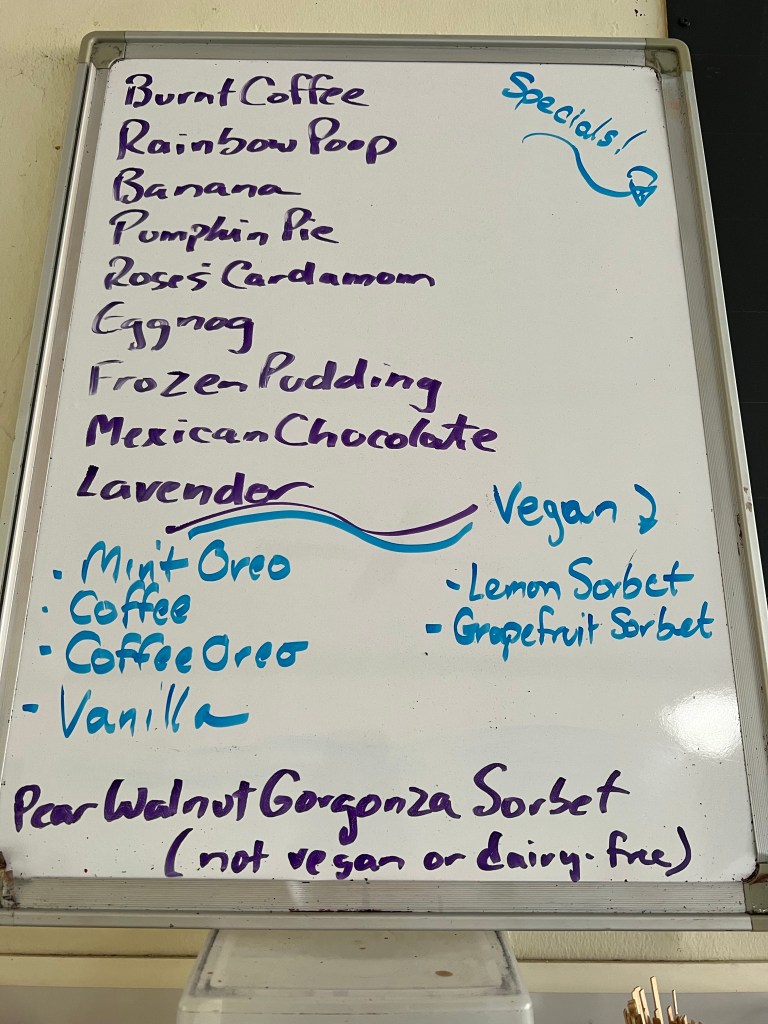 Specials!
Burnt Coffee
Rainbow Poop
Banana
Pumpkin Pie
Roses Cardamom
Eggnog
Frozen Pudding
Mexican Chocolate
Lavender
- Mint Oreo
- Coffee
- Coffee Oreo
- Vanilla
Vegan
- Lemon Sorbet
- Grapefruit Sorbet
Pear Walnut Gorgonza Sorbet
(not vegan or dairy-free)